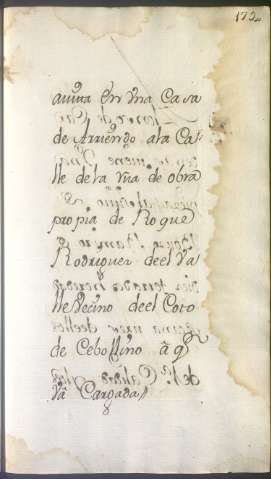 172
auina en vna Casa
de Arriendo ala Ca
lle de la Viña de obra
propia de Roque
Rodriguez deel Va
lle Vecino deel Coto
de Cebollino â q
Cargada